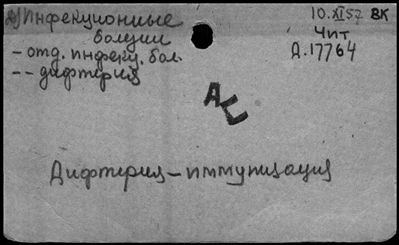 а) Инфекционные
болезни
- отд. инфекц. бол.
-- дифтерия
10.XI 57 ВК
Чит
А.17764
АЦ
Дифтерия - иммунизация